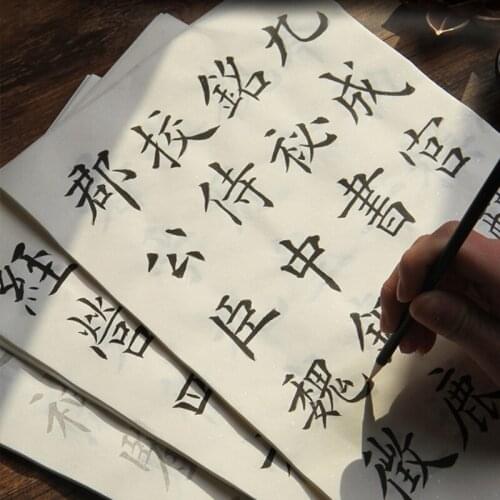 九成宮
銘祕書
校侍中鉅鹿
郡公臣魏徵
經營